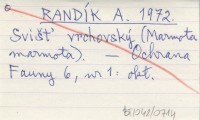 RANDÍK A. 1972.
Svišť vrchovský (Marmota
marmota). — Ochrana
Fauny 6, nr 1: obt.